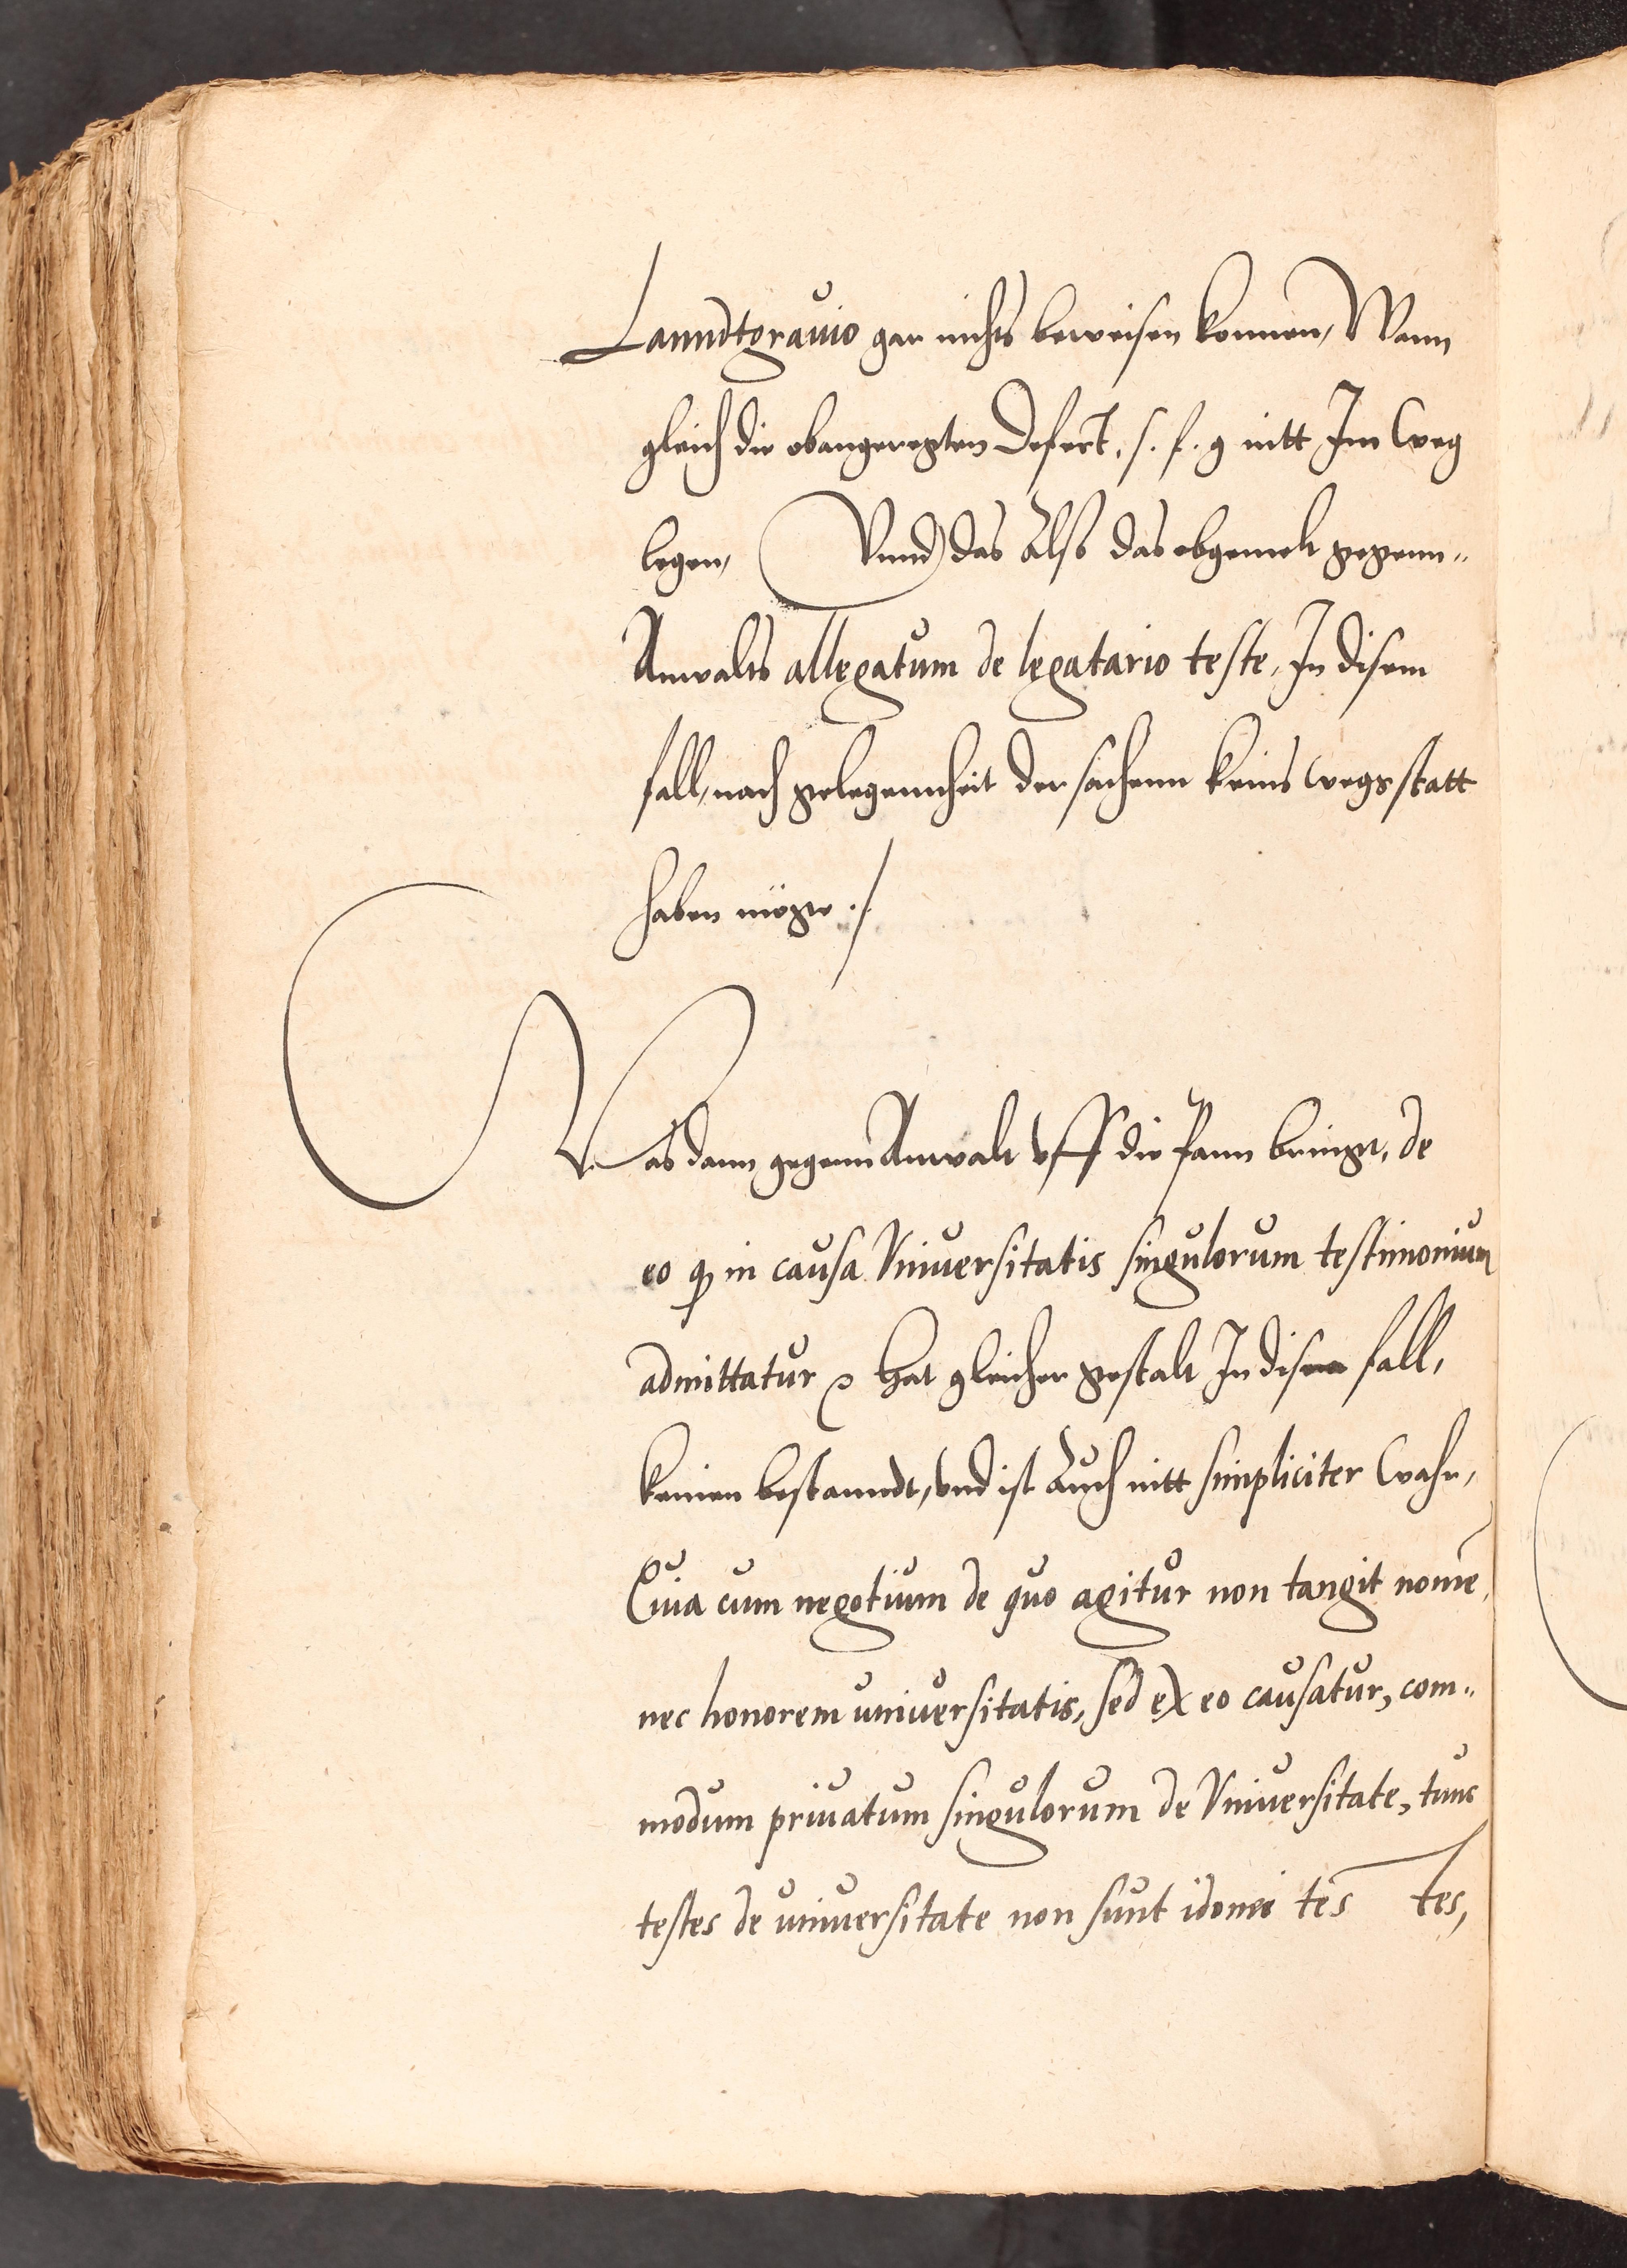 Lanndtgrauio gar nichts beweisen konnen, Wann
gleich die obangeregten Defect, s. f. g nitt Im Weg
legen, Vnnd das Also das obgemelt gegenn„
Anwalts allegatum de legatario teste, In disem
fall, nach gelegennheit der sachenn keins wegs statt
haben möge ./
Was dann gegenn Anwalt vff die pann bringt, de
eo q in causa Vniuersitatis singulorum testimonium
admittatur Hat gleicher gestalt In disem fall,
keinen bestanndt, vnd ist Auch nitt simpliciter Wahr,
Quia cum negotium de quo agitur non tangit nomē,
nec honorem vniuersitatis, sed ex eo causatur, com„
modum priuatum singulorum de Vniuersitate, tunc
testes de vniuersitate non sunt idonei tes tes,